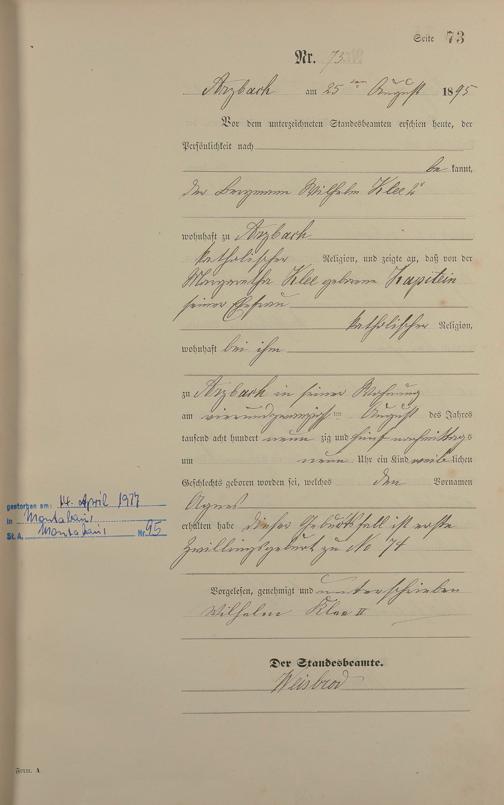 Seite 73
Nr. 73.
Arzbach am 25ten August 1895
Vor dem unterzeichneten Standesbeamten erschien heute, der
Persönlichkeit nach
be kannt,
der Bergmann Wilhelm Klee II
wohnhaft zu Arzbach
katholischer Religion, und zeigte an, daß von der
Margaretha Klee geborene Kapitein
seiner Ehefrau
katholischer Religion,
wohnhaft bei ihm
zu Arzbach in seiner Wohnung
am vierundzwanzigsten August des Jahres
tausend acht hundert neun zig und fünf nachmittags
um neun Uhr ein Kind weiblichen
Geschlechts geboren worden sei, welches den Vornamen
Agnes
erhalten habe dieser Geburtsfall ist erste
Zwillingsgeburt zu No 74
gestorben am: 14. April 1977
in Montabaur
St. A. Montabaur Nr. 95
Vorgelesen, genehmigt und unterschrieben
Wilhelm Klee II
Der Standesbeamte.
Weisbrod
Form. A